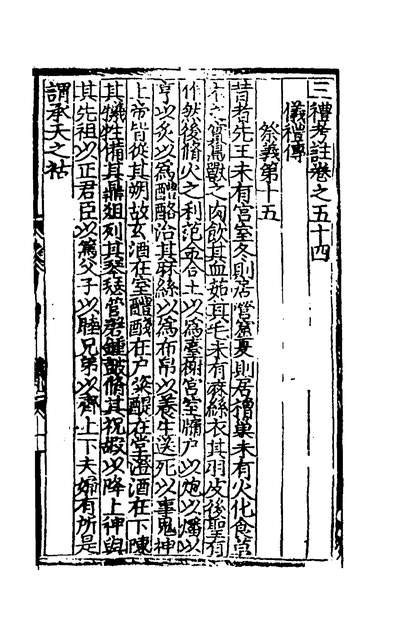 三禮考註卷之五十四
儀禮傳
祭義第十五
昔者先王未有宮室冬則居營窟夏則居橧巢未有火化食草
木之實鳥獸之肉飲其血茹其毛未有麻絲衣其羽皮後聖有
作然後脩火之利范金合土以為臺榭宮室牖户以炮以燔以
亨以炙以為醴酪治其麻絲以為布帛以養生送死以事鬼神
上帝皆從其朔故玄酒在室醴醆在户粢醍在堂澄酒在下陳
其犧牲備其鼎俎列其琴瑟管磬鍾鼓脩其祝嘏以降上神與
其先祖以正君臣以篤父子以睦兄弟以齊上下夫婦有所是
謂承天之祜